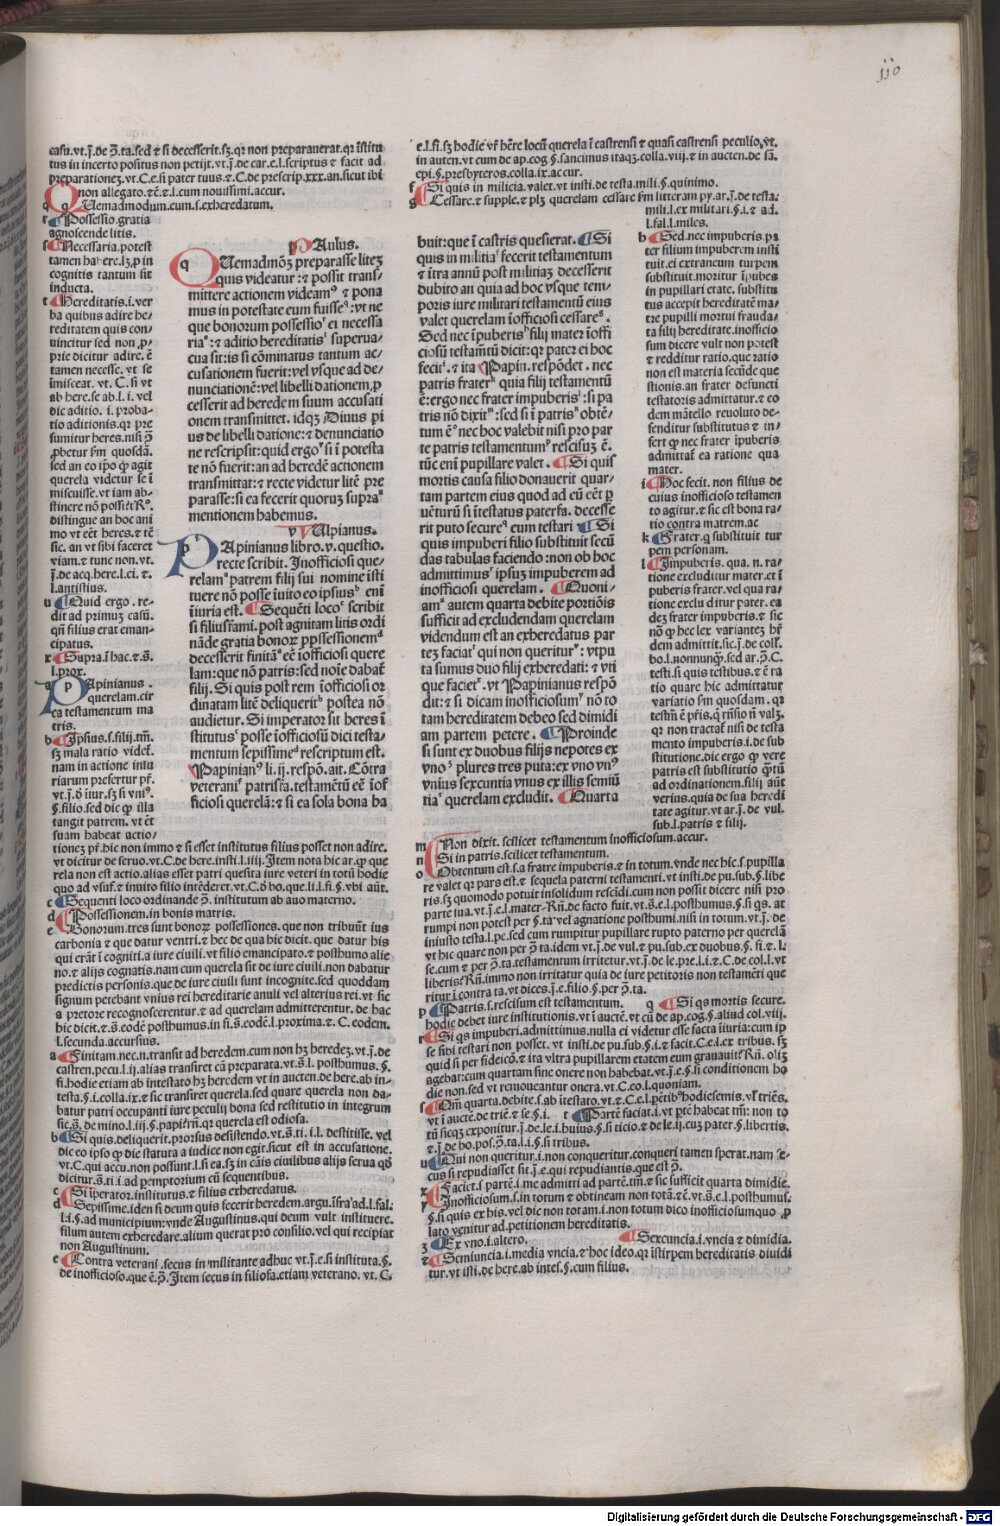 110
casu.vt.j.de ꝯ̄.ta.sed ⁊ si decesserit.sꝫ.qꝛ non preparauerat.qꝛ ĩstitu
tus in incerto positus non petijt.vt.j.de car.e.l.scriptus ⁊ facit ad
preparationeꝫ.vt.C.e.si pater tuus.⁊.C.de prescrip.xxx.an.sicut ibi
non allegato.⁊c̄.⁊.l.cum nouissimi.accur.
q Uemadmodum.cum.s.exheredatum.
r Possessio.gratia
agnoscende litis.
s Necessaria.potest
tamen habere.lꝫ.ꝑ in
cognitis tantum sit
inducta.
t Hereditatis.i.ver
ba quibus adire he-
reditatem quis con-
uincitur sed non .ꝓ-
prie dicitur adire.ē
tamen necesse.vt se
īmisceat.vt.C.si vt
ab here.se ab.l.i.vel
dic aditio.i.proba-
tio aditionis.qꝛ pre
sumitur heres.nisi ꝯ̄
ꝓbetur fm quosdā.
sed an eo ip̄o ꝙ agit
querela videtur se ī
miscuisse.vt iam ab-
stinere nō possit
distingue an hoc ani
mo vt eēt heres.⁊ tē
sic.an vt sibi faceret
viam.⁊ tunc non.vt.
j.de acq.here.l.ci.⁊.
l.antistius.
u Quid ergo.re-
dit ad primuꝫ casū.
qn̄ filius erat eman-
cipatus.
x Supra.ī hac.⁊ s̄.
l.prox.
a Papinianus.
querelam.cir
ca testamentum ma
tris.
b Ipsius.s.filij.tm̄.
sꝫ mala ratio videt.
nam in actione iniu
riarum prefertur pr̄.
vt.j.ð iur.sꝫ si vniꝰ.
§.filio.sed dic ꝙ illa
tangit patrem.vt ēt
suam habeat actio/
tioneꝫ pr̄.hic non immo ⁊ si esset institutus filius posset non adire.
vt dicitur de seruo.vt.C.de here.insti.l.iiij.Item nota hic ar.ꝙ que
rela non est actio.alias esset patri quesita iure veteri in totū hodie
quo ad vsuf.⁊ inuito filio intēderet.vt.C.ð bo.que li.l.fi.§.vbi aūt.
c Sequenti loco ordinande ꝯ̄.institutum ab auo materno.
d Possessionem.in bonis matris.
e Bonorum.tres sunt bonoꝝ possessiones.que non tribuūt ius
carbonia ⁊ que datur ventri.⁊ hec de qua hic dicit.que datur his
qui erāt ī cogniti.a iure ciuili.vt filio emancipato.⁊ posthumo alie
no.⁊ alijs cognatis.nam cum querela sit de iure ciuili.non dabatur
predictis personis.que de iure ciuili sunt incognite.sed quoddam
signum petebant vnius rei hereditarie anuli vel alterius rei.vt sic
a pretore recognoscerentur.⁊ ad querelam admitterentur.de hac
hic dicit.⁊.s̄.eodē posthumus.in fi.s̄.eodē.l.proxima.⁊.C.eodem.
l.secunda.accursius.
a Finitam.nec.n.transit ad heredem.cum non hꝫ heredeꝫ.vt.j.de
castren.pecu.l.ij.alias transiret cā preparata.vt.s̄.l.posthumus.§.
fi.hodie etiam ab intestato hꝫ heredem vt in aucten.de here.ab in-
testa.§.i.colla.ix.⁊ sic transiret querela.sed quare querela non da-
batur patri occupanti iure peculij bona sed restitutio in integrum
sic.s̄.de mino.l.iij.§.papi?n̄.qꝛ querela est odiosa.
b Si quis.deliquerit.prorsus desistendo.vt.s̄.ti.i.l.destitisse.vel
dic eo ipso ꝙ die statuta a iudice non egit.sicut est in accusatione.
vt.C.qui accu.non possunt.l.si ea.sꝫ in cāis ciuilibus alijs serua qð
dicitur.s̄.ti.i.ad ꝑemptorium cū sequentibus.
c Si iperatoꝛ.institutus.⁊ filius exheredatus.
d Sepissime.iden si deum quis fecerit heredem.argu.ifra ad.l.fal.
l.i.§.ad municipium:vnde Augustinus.qui deum vult instituere.
filium autem exheredare.alium querat pro consilio.vel qui recipiat
non Augustinum.
e Contra veterani.secus in militante adhuc vt.j.e.si instituta.§.
de inofficioso.que ē.ꝯ̄.Item secus in filiofa.etiam veterano.vt.C.
Paulus.
Quemadmoðꝫ preparasse liteꝫ
quis videatur:⁊ possit trans/
mittere actionem videamꝰ ⁊ pona
mus in potestate eum fuisse:vt ne
que bonorum possessio ei necessa
ria:⁊ aditio hereditatis superua/
cua sit:is si cōminatus tantum ac/
cusationem fuerit:vel vsque ad de/
nunciationē:vel libelli dationem.ꝓ
cesserit ad heredem suum accusati
onem transmittet.idqꝫ Diuus pi
us de libelli datione:⁊ denunciatio
ne rescripsit:quid ergo si ī potesta
te nō fuerit:an ad heredē actionem
transmittat:⁊ recte videtur litē pre
parasse:si ea fecerit quoruꝫ supra
mentionem habemus.
Ulpianus.
Papinianus libro.v.questio.
recte scribit.Inofficiosi que/
relam patrem filij sui nomine īsti
tuere nō posse īuito eo ipsius enī
iniuria est. Sequēti loco scribit
si filiusfami.post agnitam litis ordi
nāde gratia bonoꝝ ꝓpssessionem
decesserit finitā eē īofficiosi quere
lam:que nō patris:sed noīe dabat
filij.Si quis post rem īofficiosi or
dinatam litē deliquerit postea nō
audietur.Si imperator sit heres ī
stitutus posse īofficiosū dici testa/
mentum sepissime rescriptum est.
Papinianꝰ li.ij.respō.ait.Cōtra
veterani patrisfa.testamētū eē īof
ficiosi querelā:⁊ si ea sola bona ha
e.l.fi.sꝫ hodie vr̄ hēre locū querela ī castrensi ⁊ quasi castrensi peculio.vt.
in auten.vt cum de ap.cog.§.sancimus itaqꝫ.colla.viij.⁊ in aucten.de sā.
epi.§.presbyteros.colla.ix.accur.
f Si quis in milicia.valet.vt insti.de testa.mili.§.quinimo.
g Cessare.⁊ supple.⁊ plꝫ querelam cessare fm litteram py.ar.j.de testa.
mili.l.ex militari.§.i.⁊ ad.
l.fal.l.miles.
buit:que ī castris quesierat. Si
quis in militia fecerit testamentum
⁊ ītra annū post militiaꝫ decesserit
dubito an quia ad hoc vsque tem/
poris iure militari testamentū eius
valet querelam īofficiosi cessare.
Sed nec īpuberis filij mater īoffi
ciosū testamtū dicit:qꝛ pater ei hoc
fecit.⁊ ita Papin.respōdet.nec
patris frater quia filij testamentū
ē:ergo nec frater impuberis:si pa
tris nō dixit:sed si ī patris obtē/
tum ē nec hoc valebit nisi pro par
te patris testamentum rescisuꝫ ē.
tūc enī pupillare valet. Si quis
mortis causa filio donauerit quar/
tam partem eius quod ad eū cēt ꝑ
uēturū si ītestatus paterfa.decesse
rit puto secure eum testari Si
quis impuberi filio substituit secū
das tabulas faciendo:non ob hoc
admittimus ipsuꝫ impuberem ad
inofficiosi querelam. Quoni/
am autem quarta debite portiōis
sufficit ad excludendam querelam
videndum est an exheredatus par
teꝫ faciat qui non queritur:vtpu
ta sumus duo filij exheredati:⁊ vti
que faciet.vt Papinianus respō
dit:⁊ si dicam inofficiosum nō to
tam hereditatem debeo sed dimidi
am partem petere. Proinde
si sunt ex duobus filijs nepotes ex
vno plures tres puta:ex vno vnꝰ
vnius sexcuntia vnus ex illis semiū
tia querelam excludit. Quarta
h Sed.nec impuberis pa
ter filium impuberem insti
tuit.ei extraneum turpem
substituit.moritur ipubes
in pupillari etate.substitu
tus accepit hereditatē ma-
tre pupilli mortui frauda/
ta filij hereditate.inofficio
sum dicere vult non potest
⁊ redditur ratio.que ratio
non est materia secūde que
stionis.an frater defuncti
testatoris admittatur.⁊ eo
dem mātello reuoluto de-
fenditur substitutus ⁊ in/
fert ꝙ nec frater ipuberis
admittat ea ratione qua
mater.
i Hoc fecit.non filius de
cuius inofficioso testamen
to agitur.⁊ sic est bona ra-
tio contra matrem.ac
k Frater.q substituit tur
pem personam.
l Impuberis.qua.n.ra/
tione excluditur mater.et ī
puberis frater.vel qua ra/
tione excluditur pater.ea
deꝫ frater impuberis.⁊ sic
nō ꝙ hec lex variantez hr̄
dem admittit.sic.j.de coll.
bo.l.nonnunqꝫ.sed ar.ꝯ̄.C.
testi.si quis testibus.⁊ ē ra
tio quare hic admittatur
variatio fm quosdam.qꝛ
testm̄ ē pr̄is.q rn̄sio n̄ valꝫ.
qꝛ non tractat nisi de testa
mento impuberis.i.de sub
stitutione.dic ergo ꝙ vere
patris est substitutio ꝙtū
ad ordinationem.filij aūt
verius.quia de sua heredi
tate agitur.vt ar.j.de vul.
sub.l.patris ⁊ filij.
m Non dixit.scilicet testamentum inofficiosum.accur.
n Si in patris.scilicet testamentum.
o Obtentum est.s.a fratre impuberis.⁊ in totum.vnde nec hic.s.pupilla
re valet qꝛ pars est.⁊ sequela paterni testamenti.vt insti.de pu.sub.§.libe
ris.sꝫ quomodo potuit insolidum rescidi.cum non possit dicere nisi pro
parte sua.vt.j.e.l.mater.Rn̄.de facto fuit.vt.s̄.e.l.posthumus.§.si qs.at
rumpi non potest per ꝯ̄.ta vel agnatione posthumi.nisi in totum.vt.j.de
iniusto testa.l.pe.sed cum rumpitur pupillare rupto paterno per querelā
vt hic quare non per ꝯ̄.ta.idem vt.j.de vul.⁊ pu.sub.ex duobus.§.fi.⁊.l.
se.cum ⁊ per ꝯ̄.ta.testamentum irritetur.vt.j.de le.pre.l.i.⁊.C.de col.l.vt
liberis?Rn̄.immo non irritatur quia de iure petitoris non testamēti que
ritur ī contra ta.vt dices.j.e.filio.§.per ꝯ̄.ta.
p Patris.s.rescisum est testamentum. q Si qs mortis secure.
hodie debet iure institutionis.vt ī auctē.vt cū de ap.cog.§.aliud col.viij.
r Si qs impuberi.admittimus.nulla ei videtur esse facta iniuria:cum ip
se sibi testari non posset.vt insti.de pu.sub.§.i.⁊ facit.C.e.l.ex tribus.sꝫ
quid si per fideicō.⁊ ita vltra pupillarem etatem eum grauauit?Rn̄.oliꝫ
agebat:cum quartam sine onere non habebat.vt.j.e.§.si conditionem ho
die non.sed vt remoueantur onera.vt.C.eo.l.quoniam.
s Qm̄ quarta.debite.s.ab itestato.vt.⁊.C.e.l.ꝑtibꝰ.hodie semis.vl triēs.
vt ī auctē.de triē.⁊ se.§.i. t Partē faciat.i.vt ꝑtē habeat tm̄:non to
tū sicqꝫ exponitur.j.de.le.i.huius.§.si ticio.⁊ de le.ij.cuꝫ pater.§.libertis.
⁊.j.de bo.pos.ꝯ̄.ta.l.i.§.si tribus.
u Qui non queritur.i.non conqueritur.conqueri tamen sperat.nam se-
cus si repudiasset sit.j.e.qui repudiantis.que est ꝯ̄.
x Faciet.s.partē.i.me admitti ad partē.tm̄.⁊ sic sufficit quarta dimidie.
y Inofficiosum.s.in totum ⁊ obtineam non totā.⁊ē.vt.s̄.e.l.posthumus.
§.si quis ex his.vel dic non totam.i.non totum dico inofficiosumquo ꝓ
lato venitur ad.petitionem hereditatis.
z Ex vno.i.altero. Sexcuncia.i.vncia ⁊ dimidia.
⁊ Semiuncia.i.media vncia.⁊ hoc ideo.qꝛ īstirpem hereditatis diuidi
tur.vt isti.de here.ab intes.§.cum filius.
Digitalisierung gefördert durch die Deutsche Forschungsgemeinschaft - DFG